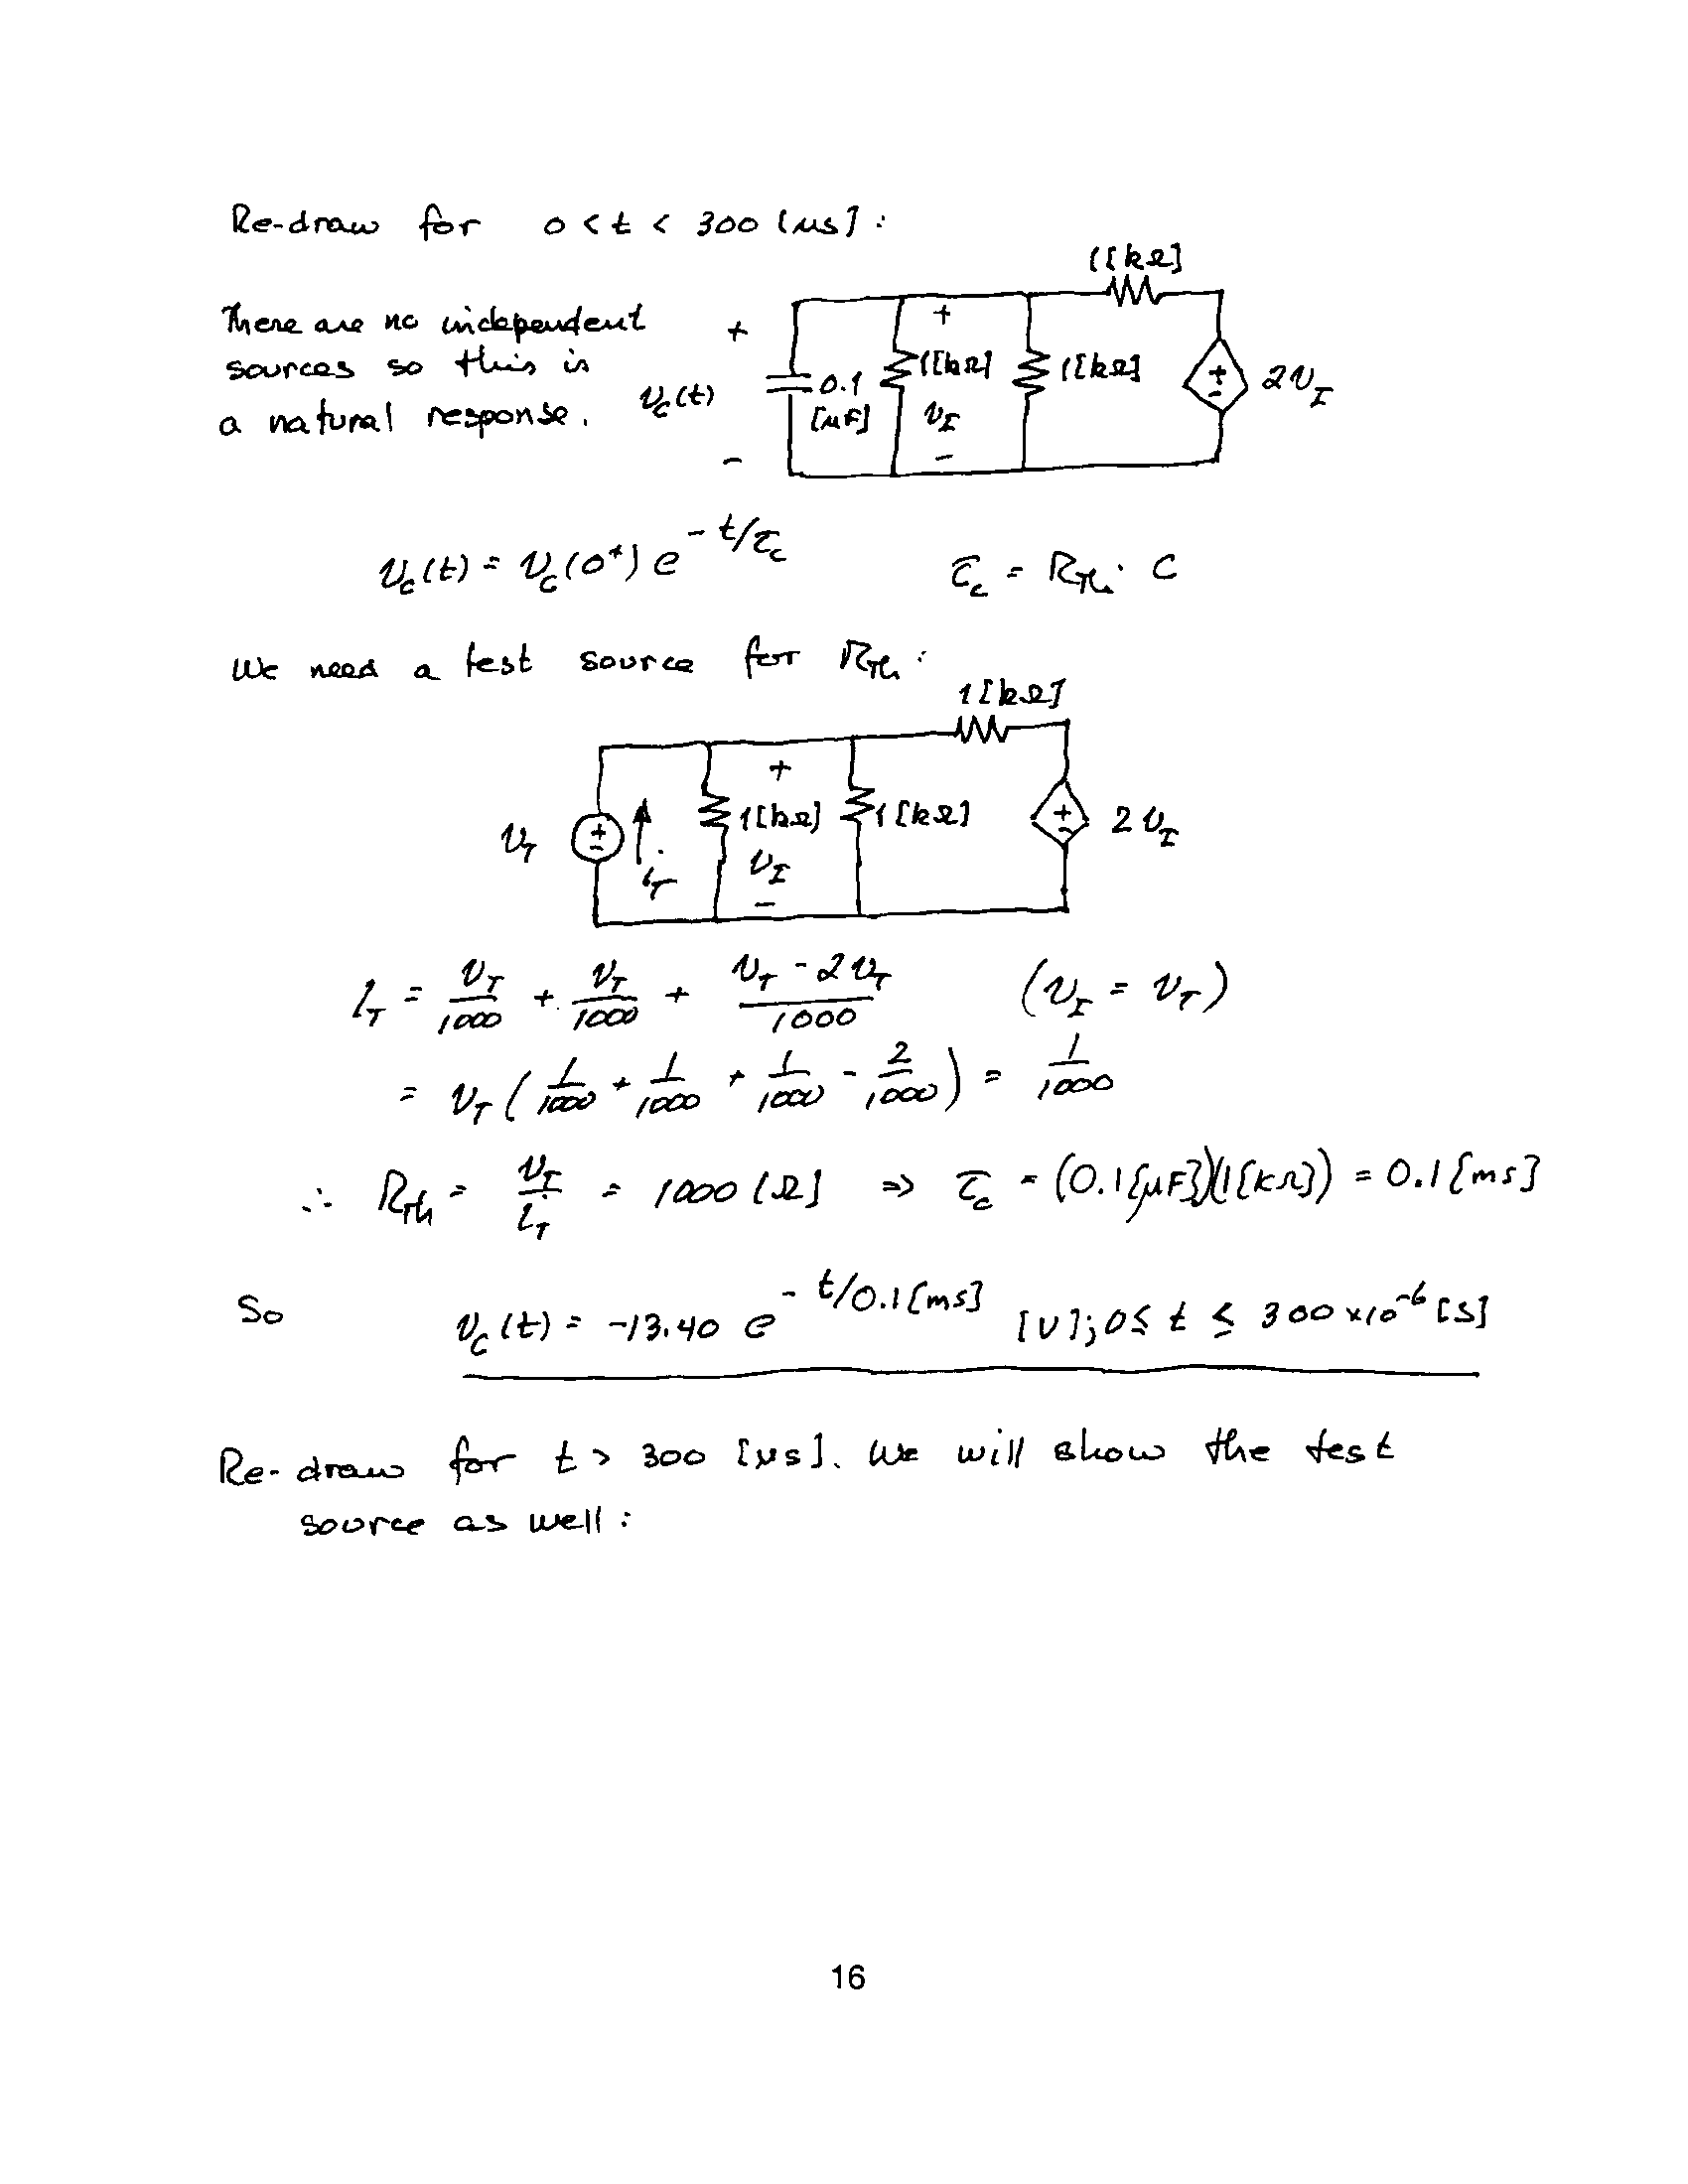 Re-draw for 0 < t < 300 [μs] :
1[kΩ]
There are no independent
sources so this is
a natural response.
+
v_C(t)
-
0.1
[μF]
+
1[kΩ]
v_I
-
1[kΩ]
+
-
2v_I
v_C(t) = v_C(0⁺) e^{-t/τ_C}    τ_C = R_Th · C
We need a test source for R_Th :
1[kΩ]
v_T
+
-
i_T
+
1[kΩ]
v_I
-
1[kΩ]
+
-
2v_I
i_T = v_T/1000 + v_T/1000 + (v_T - 2v_T)/1000    (v_I = v_T)
= v_T ( 1/1000 + 1/1000 + 1/1000 - 2/1000 ) = 1/1000
∴ R_Th = v_T/i_T = 1000 [Ω] ⇒ τ_C = (0.1[μF])(1[kΩ]) = 0.1[ms]
So    v_C(t) = -13.40 e^{-t/0.1[ms]} [V]; 0 ≤ t ≤ 300 x10⁻⁶ [s]
Re-draw for t > 300 [μs]. We will show the test
source as well :
16